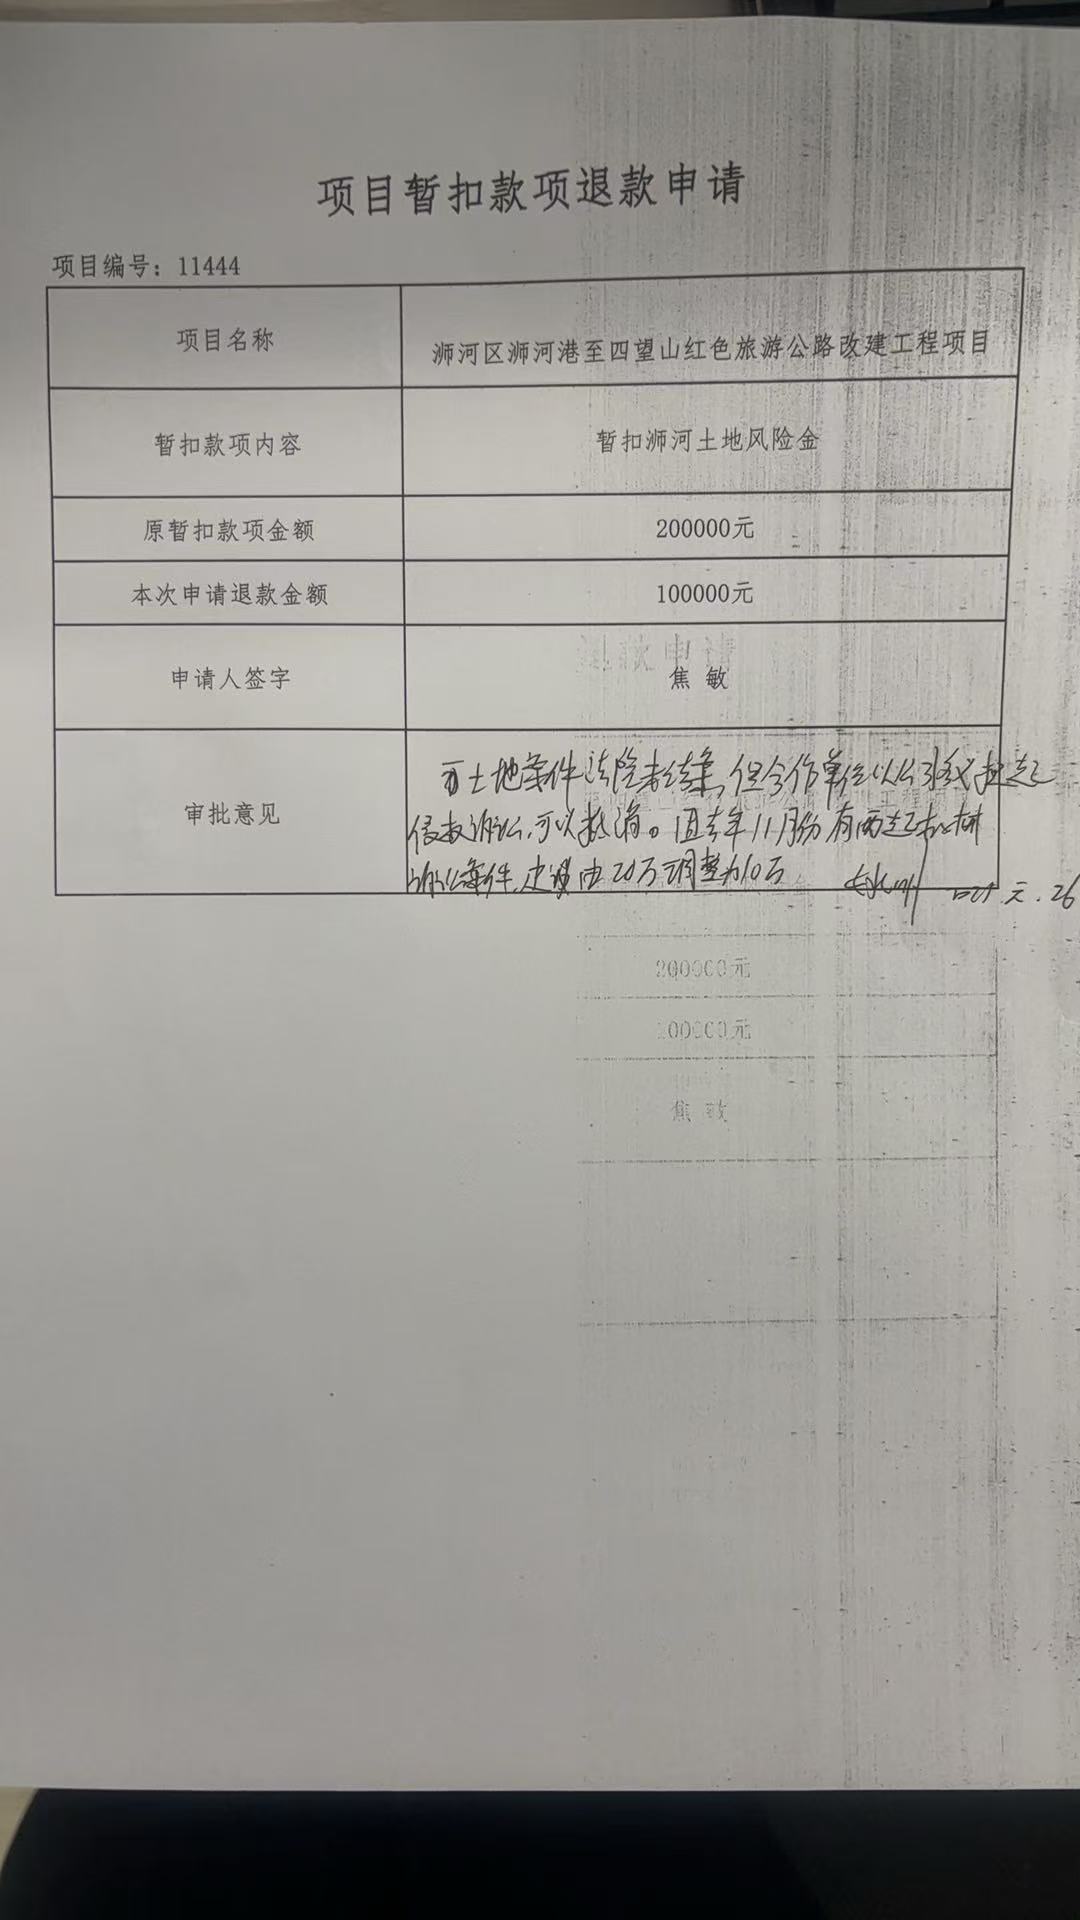 项目暂扣款项退款申请
项目编号：11444
项目名称
浉河区浉河港至四望山红色旅游公路改建工程项目
暂扣款项内容
暂扣浉河土地风险金
原暂扣款项金额
200000元
本次申请退款金额
100000元
申请人签字
焦 敏
审批意见
土地案件法院未结案，但合作单位以公司名义提起
侵权诉讼，可以抵消。且去年11月份有两起
诉讼案件，建议由20万调整为10万
退款申请
200000元
100000元
焦 敏